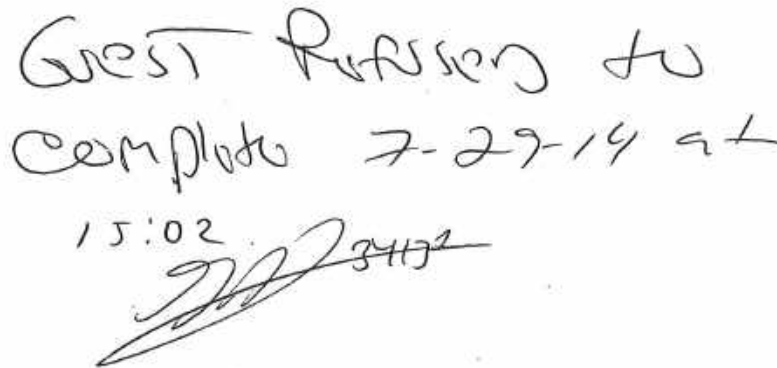 Guest Refused to
complete 7-29-14 at
15:02